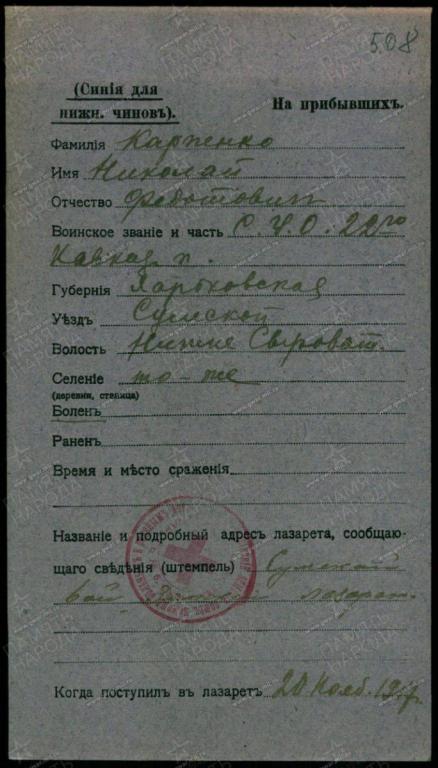 508
(Синія для
нижн. чиновъ).
На прибывшихъ.
Фамилія Карпенко
Имя Николай
Отчество Федотович
Воинское званіе и часть С. У. О. 22го
Кавказ. п.
Губернія Харьковская
Уѣздъ Сумской
Волость Нижне Сыроват.
Селеніе то-же
(деревни, степица)
Боленъ
Раненъ
Время и мѣсто сраженія
Названіе и подробный адресъ лазарета, сообщаю-
щаго свѣдѣнія (штемпель) Сумский
лазарет.
Когда поступилъ въ лазаретъ 20 Нояб. 1917.
ПАМЯТЬ НАРОДА